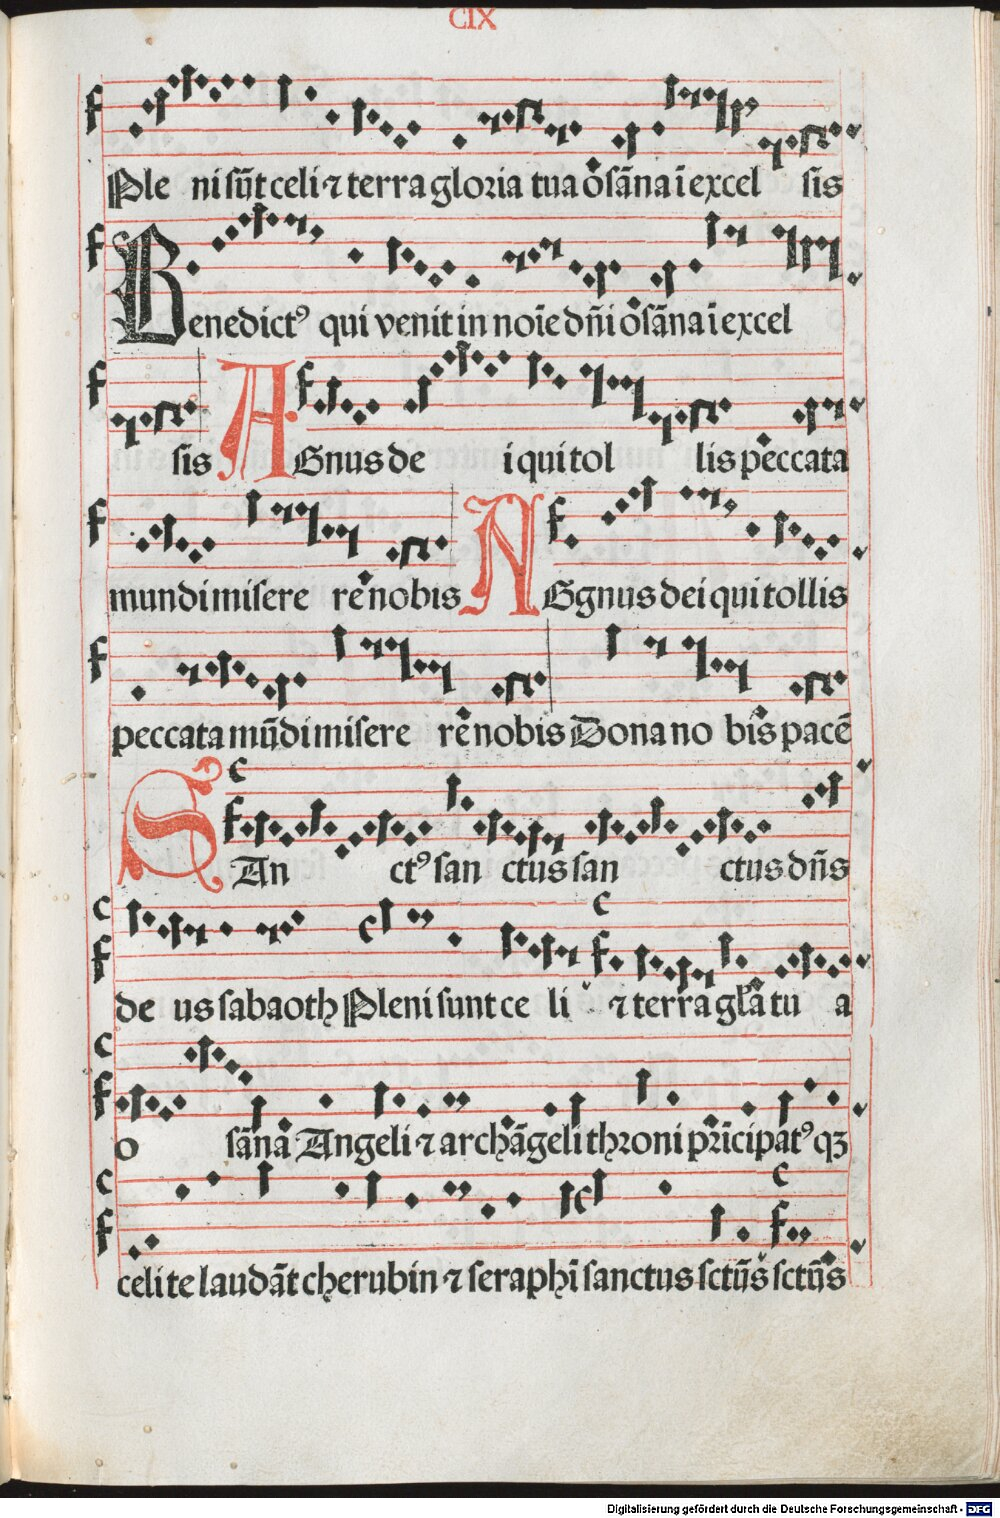 CIX
Ple ni sūt celi ⁊ terra gloria tua osāna ī excel sis
Benedictꝰ qui venit in noīe dn̄i osāna ī excel
sis AGnus de i qui tol lis peccata
mundi misere re nobis AGgnus dei qui tollis
peccata mūdi misere re nobis Dona no bis pacē
SAn ctꝰ san ctus san ctus dn̄s
de us sabaoth Pleni sunt ce li ⁊ terra gl̄a tu a
o sāna Angeli ⁊ archāgeli throni prīcipatꝰ qꝫ
celi te laudāt cherubin ⁊ seraphī sanctus sctūs sctūs
Digitalisierung gefördert durch die Deutsche Forschungsgemeinschaft - DFG